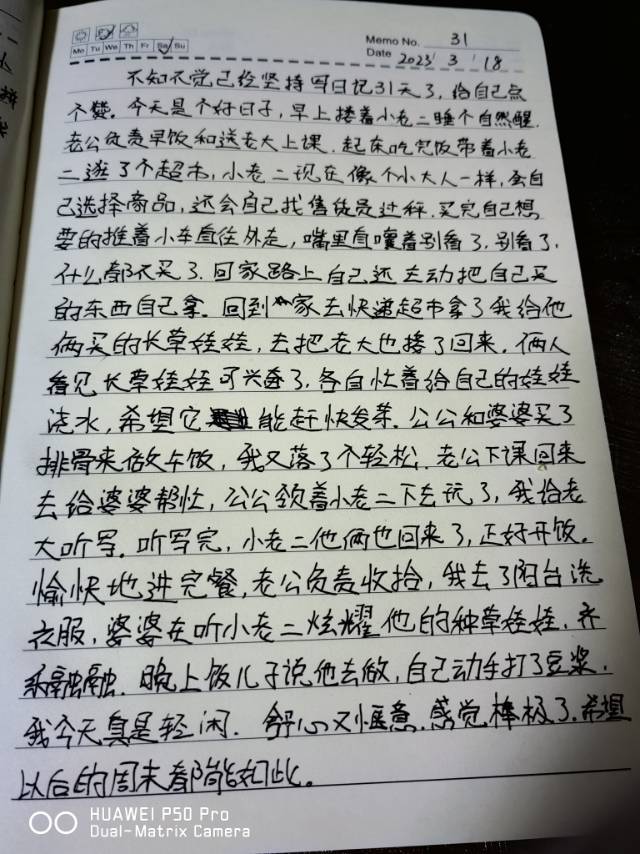 Memo No. 31
Mo Tu We Th Fr Sa Su
Date 2023 3 18
不知不觉已经坚持写日记31天了,给自己点
个赞。今天是个好日子,早上搂着小老二睡个自然醒.
老公负责早饭和送老大上课.起床吃完饭带着小老
二逛了个超市,小老二现在像个小大人一样,会自
己选择商品,还会自己找售货员过秤.买完自己想
要的推着小车直往外走,嘴里直嚷着别看了.别看了,
什么都不买了.回家路上自己还主动把自己买
的东西自己拿.回到家去快递超市拿了我给他
俩买的长草娃娃,去把老大也接了回来.俩人
看见长草娃娃可兴奋了,各自忙着给自己的娃娃
浇水,希望它能赶快发芽.公公和婆婆买了
排骨来做午饭,我又落了个轻松.老公下课回来
去给婆婆帮忙,公公领着小老二下去玩了,我给老
大听写.听写完,小老二他俩也回来了,正好开饭。
愉快地进完餐,老公负责收拾,我去了阳台洗
衣服,婆婆在听小老二炫耀他的种草娃娃,齐
乐融融.晚上饭儿子说他去做,自己动手打了豆浆,
我今天真是轻闲.舒心又惬意.感觉棒极了.希望
以后的周末都能如此。
HUAWEI P50 Pro
Dual-Matrix Camera